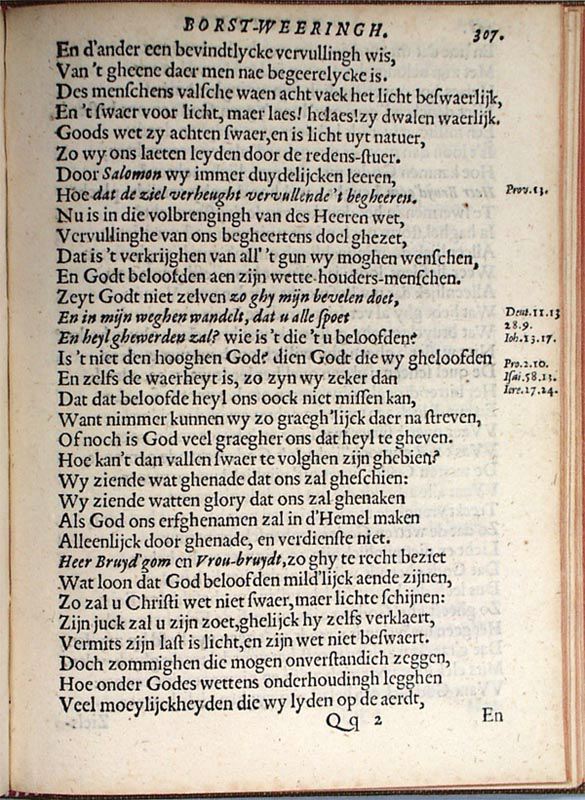 BORST-WEERINGH. 307.
En d'ander een bevindtlycke vervullingh wis,
Van 't gheene daer men nae begeerelycke is.
Des menschens valsche waen acht vaek het licht beswaerlijk,
En 't swaer voor licht, maer laes! helaes! zy dwalen waerlijk.
Goods wet zy achten swaer, en is licht uyt natuer,
Zo wy ons laeten leyden door de redens-stuer.
Door Salomon wy immer duydelijcken leeren,
Hoe dat de ziel verheught vervullende 't begheeren. Prov. 13.
Nu is in die volbrengingh van des Heeren wet,
Vervullinghe van ons begheertens doel ghezet,
Dat is 't verkrijghen van all' 't gun wy moghen wenschen,
En Godt beloofden aen zijn wette-houders-menschen.
Zeyt Godt niet zelven zo ghy mijn bevelen doet,
En in mijn weghen wandelt, dat u alle spoet Deut. 11.13
En heyl ghewerden zal? wie is 't die 't u beloofden? 28.9. Ioh. 13.17.
Is 't niet den hooghen God? dien Godt die wy gheloofden
En zelfs de waerheyt is, zo zyn wy zeker dan Pro. 2.10. Isai. 58.13.
Dat dat beloofde heyl ons oock niet missen kan, Iere. 17.24.
Want nimmer kunnen wy zo graegh'lijck daer na streven,
Of noch is God veel graegher ons dat heyl te gheven.
Hoe kan't dan vallen swaer te volghen zijn ghebien?
Wy ziende wat ghenade dat ons zal gheschien:
Wy ziende watten glory dat ons zal ghenaken
Als God ons erfghenamen zal in d'Hemel maken
Alleenlijck door ghenade, en verdienste niet.
Heer Bruyd'gom en Vrou-bruydt, zo ghy te recht beziet
Wat loon dat God beloofden mild'lijck aende zijnen,
Zo zal u Christi wet niet swaer, maer lichte schijnen:
Zijn juck zal u zijn zoet, ghelijck hy zelfs verklaert,
Vermits zijn last is licht, en zijn wet niet beswaert.
Doch zommighen die mogen onverstandich zeggen,
Hoe onder Godes wettens onderhoudingh legghen
Veel moeylijckheyden die wy lyden op de aerdt,
Qq 2 En